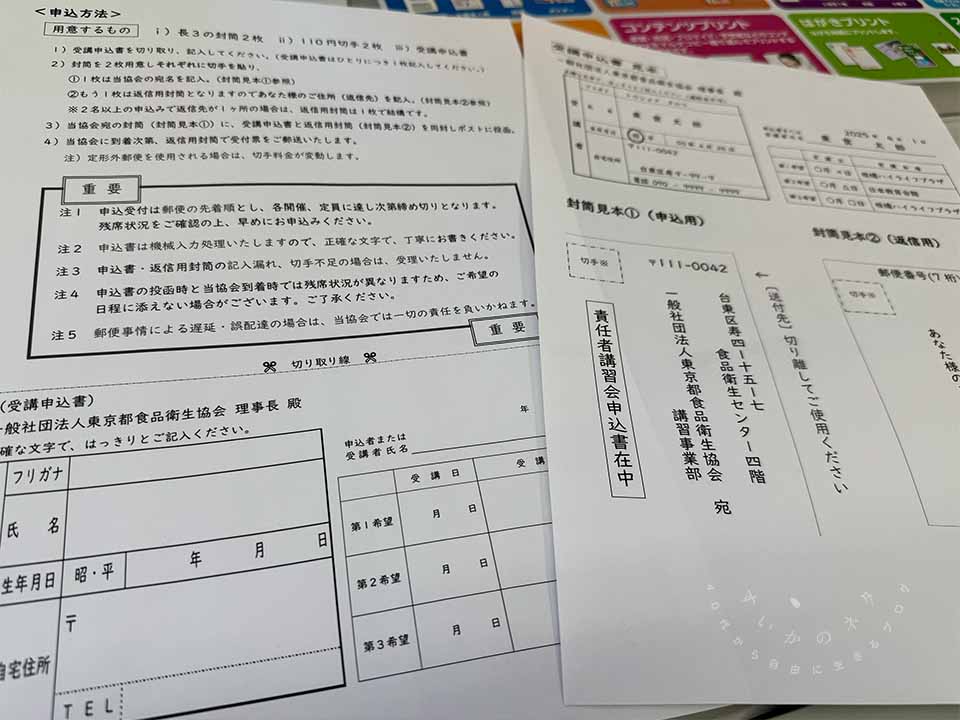 <申込方法>
用意するもの ⅰ）長３の封筒２枚 ⅱ）１１０円切手２枚 ⅲ）受講申込書
１）受講申込書を切り取り、記入してください。（受講申込書はひとりにつき１枚記入してください。）
２）封筒を２枚用意しそれぞれに切手を貼り、
①１枚は当協会の宛名を記入。（封筒見本①参照）
②もう１枚は返信用封筒となりますのであなた様のご住所（返信先）を記入。（封筒見本②参照）
※２名以上の申込みで返信先が１ヶ所の場合は、返信用封筒は１枚で結構です。
３）当協会宛の封筒（封筒見本①）に、受講申込書と返信用封筒（封筒見本②）を同封しポストに投函。
４）当協会に到着次第、返信用封筒で受付票をご郵送いたします。
注）定形外郵便を使用される場合は、切手料金が変動します。
重 要
注１ 申込受付は郵便の先着順とし、各開催、定員に達し次第締め切りとなります。
残席状況をご確認の上、早めにお申込みください。
注２ 申込書は機械入力処理いたしますので、正確な文字で、丁寧にお書きください。
注３ 申込書・返信用封筒の記入漏れ、切手不足の場合は、受理いたしません。
注４ 申込書の投函時と当協会到着時では残席状況が異なりますため、ご希望の
日程に添えない場合がございます。ご了承ください。
注５ 郵便事情による遅延・誤配達の場合は、当協会では一切の責任を負いかねます。
重 要
切り取り線
（受講申込書）
一般社団法人東京都食品衛生協会 理事長 殿
確な文字で、はっきりとご記入ください。
フリガナ
氏 名
生年月日 昭・平 年 月 日
自宅住所 〒
ＴＥＬ
年
申込者または
受講者氏名
受 講 日 受 講
第１希望 月 日
第２希望 月 日
第３希望 月 日
コンテンツプリント
はがきプリント
受講申込書 見本
〒111-0042
台東区寿4-99-9
電話 090 - 9999 - 9999
2025年
食 衛 太 郎
封筒見本①（申込用）
切手※
〒111-0042
台東区寿四ー十五ー七
食品衛生センター四階
一般社団法人東京都食品衛生協会
講習事業部 宛
責任者講習会申込書在中
←〔送付先〕切り離してご使用ください
封筒見本②（返信用）
切手※
郵便番号(7桁)
あなた様の
いかの木
自由に生きるブログ